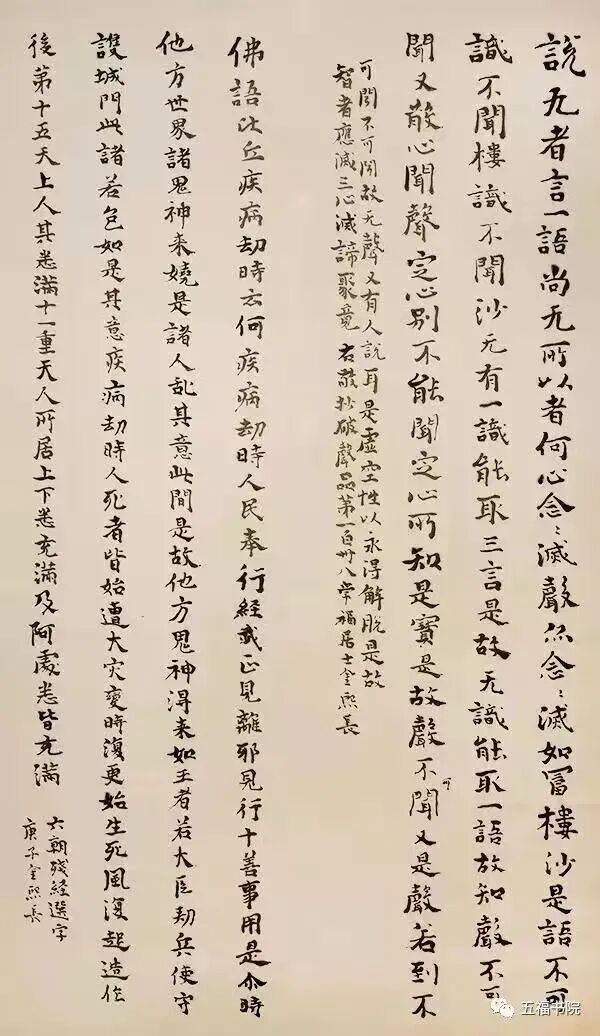 說无者言一語尚无所以者何心念〻滅聲亦念〻滅如冨樓沙是語不可
識不聞樓識不聞沙无有一識能取三言是故无識能取一語故知聲不可
聞又散心聞聲定心別不能聞定心所知是寶是故聲不可聞又是聲若到不
可聞不可聞故无聲又有人說耳是虛空性以永得解脫是故
智者應滅三心滅諦聚竟 右敬抄破聲品第一百卌八常福居士金熙長
佛語比丘疾病劫時云何疾病劫時人民奉行經戒正見離邪見行十善事用是尒時
他方世界諸鬼神来嬈是諸人乱其意此間是故他方鬼神淂来如王者若大臣劫兵使守
䕶城門此諸若色如是其意疾病劫時人死者皆始遭大灾變時復更始生死風復起造作
後第十五天上人其悉滿十一重天人所居上下悉充滿及阿處悉皆充滿
六朝殘経選字
庚子金熙長
五福书院